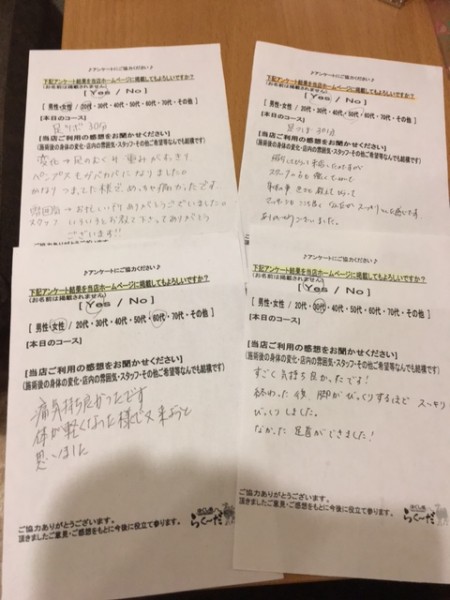 ♪アンケートにご協力ください♪
下記アンケート結果を当店ホームページに掲載してもよろしいですか？
(お名前は掲載されません)
[ Yes / No ]
[ 男性・女性 / 20代・30代・40代・50代・60代・70代・その他 ]
[本日のコース]
足つぼ 30分
[当店ご利用の感想をお聞かせください]
(施術後の身体の変化・店内の雰囲気・スタッフ・その他ご希望等なんでも結構です)
変化→足のむくみ 重みがすっきり
パンプスも
かなり
雰囲気→お忙しい中ありがとうございました。
スタッフ いろいろとお教え下さってありがとう
ございます!!
♪アンケートにご協力ください♪
下記アンケート結果を当店ホームページに掲載してもよろしいですか？
(お名前は掲載されません)
[ Yes / No ]
[ 男性・女性 / 20代・30代・40代・50代・60代・70代・その他 ]
[本日のコース]
足つぼ 30分
[当店ご利用の感想をお聞かせください]
(施術後の身体の変化・店内の雰囲気・スタッフ・その他ご希望等なんでも結構です)
ありがとうございました。
♪アンケートにご協力ください♪
下記アンケート結果を当店ホームページに掲載してもよろしいですか？
(お名前は掲載されません)
[ Yes / No ]
[ 男性・女性 / 20代・30代・40代・50代・60代・70代・その他 ]
[本日のコース]
[当店ご利用の感想をお聞かせください]
(施術後の身体の変化・店内の雰囲気・スタッフ・その他ご希望等なんでも結構です)
痛気持ち良かったです
体が軽くなった様で又来ようと
思いました
ご協力ありがとうございます。
頂きましたご意見・ご感想をもとに今後に役立て参ります。
らくーだ
♪アンケートにご協力ください♪
下記アンケート結果を当店ホームページに掲載してもよろしいですか？
(お名前は掲載されません)
[ Yes / No ]
[ 男性・女性 / 20代・30代・40代・50代・60代・70代・その他 ]
[本日のコース]
[当店ご利用の感想をお聞かせください]
(施術後の身体の変化・店内の雰囲気・スタッフ・その他ご希望等なんでも結構です)
すごく気持ち良かったです！
終わった後、脚がびっくりするほどスッキリ
びっくりしました。
なかった足首ができました！
ご協力ありがとうございます。
頂きましたご意見・ご感想をもとに今後に役立て参ります。
らくーだ